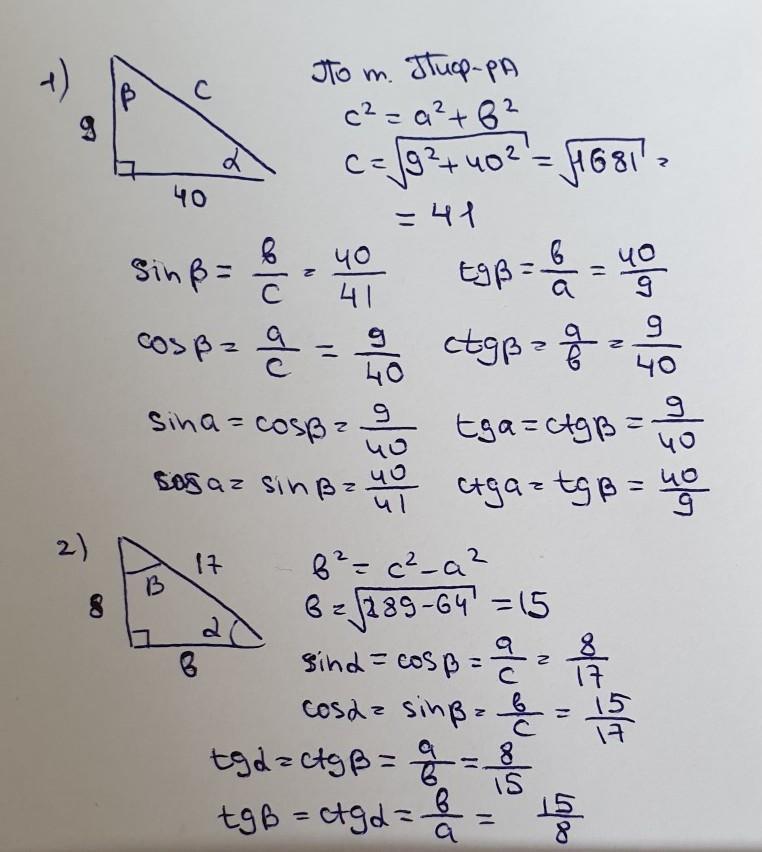 1)
β c
9
α
40
По т. Пиф-рА
c² = a² + в²
c = √9² + 40² = √1681 =
= 41
sin β = в/c = 40/41 tg β = в/a = 40/9
cos β = a/c = 9/40 ctg β = a/в = 9/40
sin a = cos β = 9/40 tg a = ctg β = 9/40
cos a = sin β = 40/41 ctg a = tg β = 40/9
2)
17
B
8
α
в
в² = c² - a²
в = √289-64 = 15
sin α = cos β = a/c = 8/17
cos α = sin β = в/c = 15/17
tg α = ctg β = a/в = 8/15
tg β = ctg α = в/a = 15/8